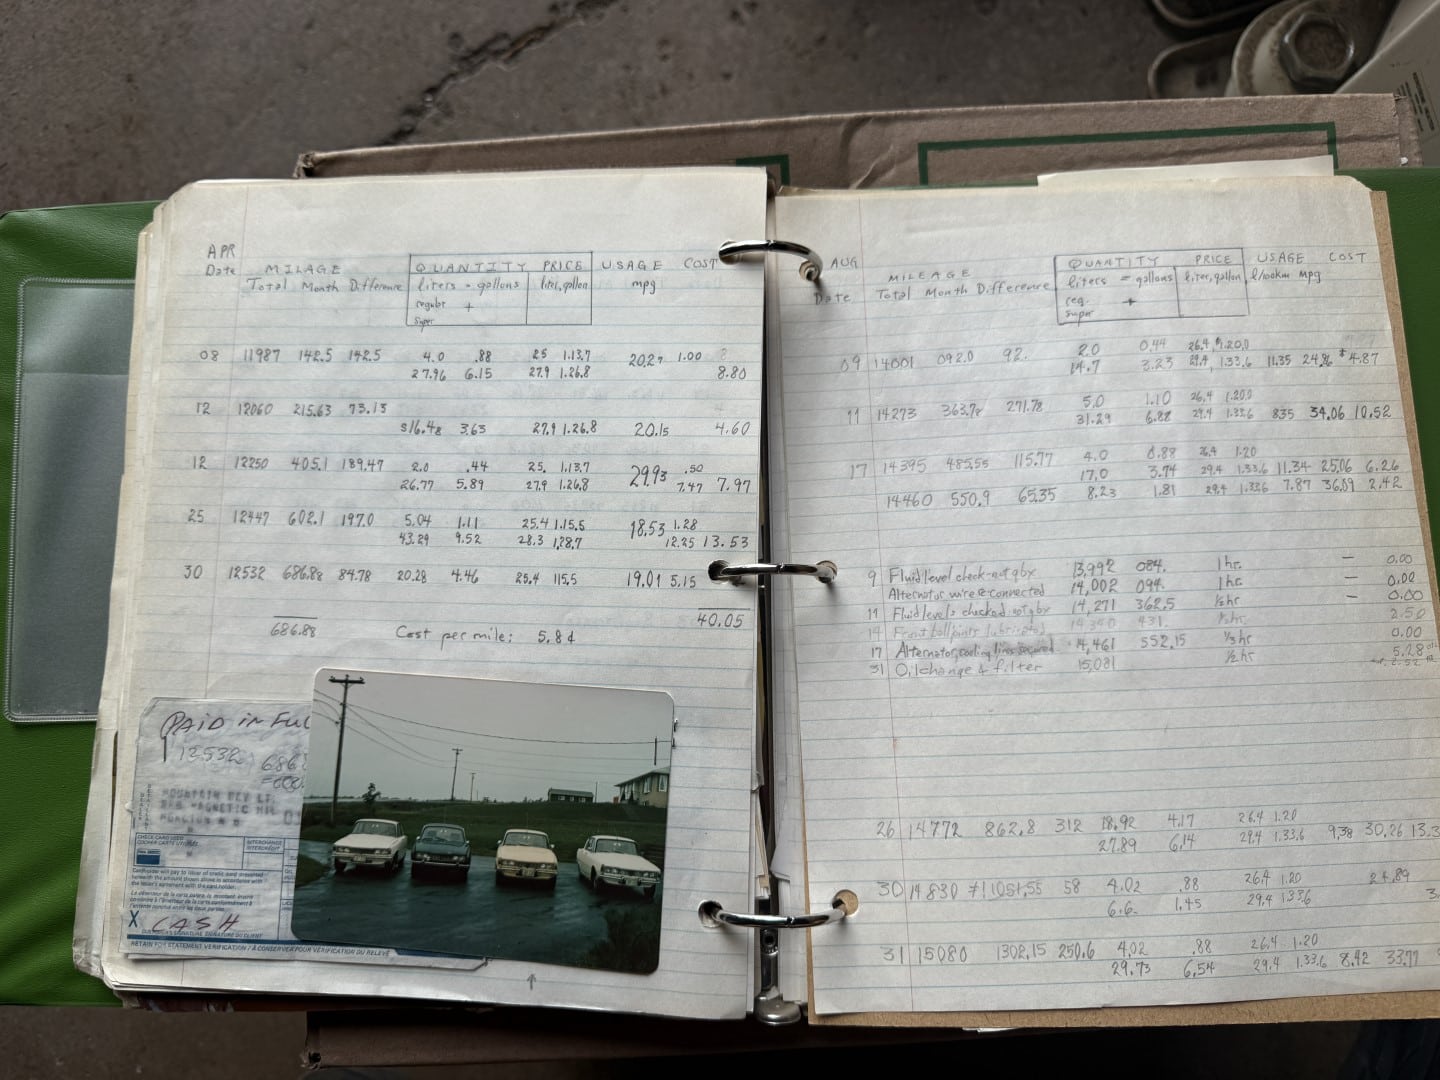 APR
Date MILAGE QUANTITY PRICE USAGE COST
Total Month Difference liters = gallons liter, gallon mpg
regular +
super
08 11987 142.5 142.5 4.0 .88 25 1.13.7 20.27 1.00
27.96 6.15 27.9 1.26.8 8.80
12 12060 215.63 73.13
$16.48 3.63 27.9 1.26.8 20.15 4.60
12 12250 405.1 189.47 2.0 .44 25. 1.13.7 29.93 .50
26.77 5.89 27.9 1.26.8 7.47 7.97
25 12447 602.1 197.0 5.04 1.11 25.4 1.15.5 18.53 1.28
43.29 9.52 28.3 1.28.7 12.25 13.53
30 12532 686.88 84.78 20.28 4.46 25.4 115.5 19.01 5.15
40.05
686.88 Cost per mile: 5.8¢
PAID IN FUL
12532 686.
MOUNTAIN
MAGNETIC HIL
MONCTON N B
CHECK CARD USED
COCHER CARTE UTILISÉE
INTERCHANGE
INTERCRÉDIT
Cardholder will pay to issuer of credit card presented
herewith the amount shown above in accordance with
the issuer's agreement with the card holder.
X CASH
RETAIN FOR STATEMENT VERIFICATION / À CONSERVER POUR VÉRIFICATION DU RELEVÉ
↑
AUG
Date MILEAGE QUANTITY PRICE USAGE COST
Total Month Difference liters = gallons liter, gallon l/100km mpg
reg. +
super
09 14001 092.0 92. 2.0 0.44 26.4, $1.20.0
14.7 3.23 29.4, 1.33.6 11.35 24.86 $4.87
11 14273 363.78 271.78 5.0 1.10 26.4 1.20.0
31.29 6.88 29.4 1.33.6 835 34.06 10.52
17 14395 485.55 115.77 4.0 0.88 26.4 1.20
17.0 3.74 29.4 1.33.6 11.34 25.06 6.26
14460 550.9 65.35 8.23 1.81 29.4 1.33.6 7.87 36.09 2.42
9 Fluid level check-not gbx 13,992 084. 1 hr. — 0.00
Alternator wire reconnected 14,002 094. 1 hr. — 0.00
11 Fluid levels checked-not gbx 14,271 362.5 ½ hr — 0.00
14 Front balljoints lubricated 14,340 431. ½ hr 2.50
17 Alternator, cooling lines secured 14,461 552.15 ⅓ hr 0.00
31 Oil change & filter 15,081 ½ hr 5.28
26 14772 862.8 312 18.92 4.17 26.4 1.20
27.89 6.14 29.4 1.33.6 9.38 30.26 13.3
30 14830 1051.55 58 4.02 .88 26.4 1.20 24.89
6.6. 1.45 29.4 1.33.6 3.
31 15080 1302.15 250.6 4.02 .88 26.4 1.20
29.73 6.54 29.4 1.33.6 8.42 33.77